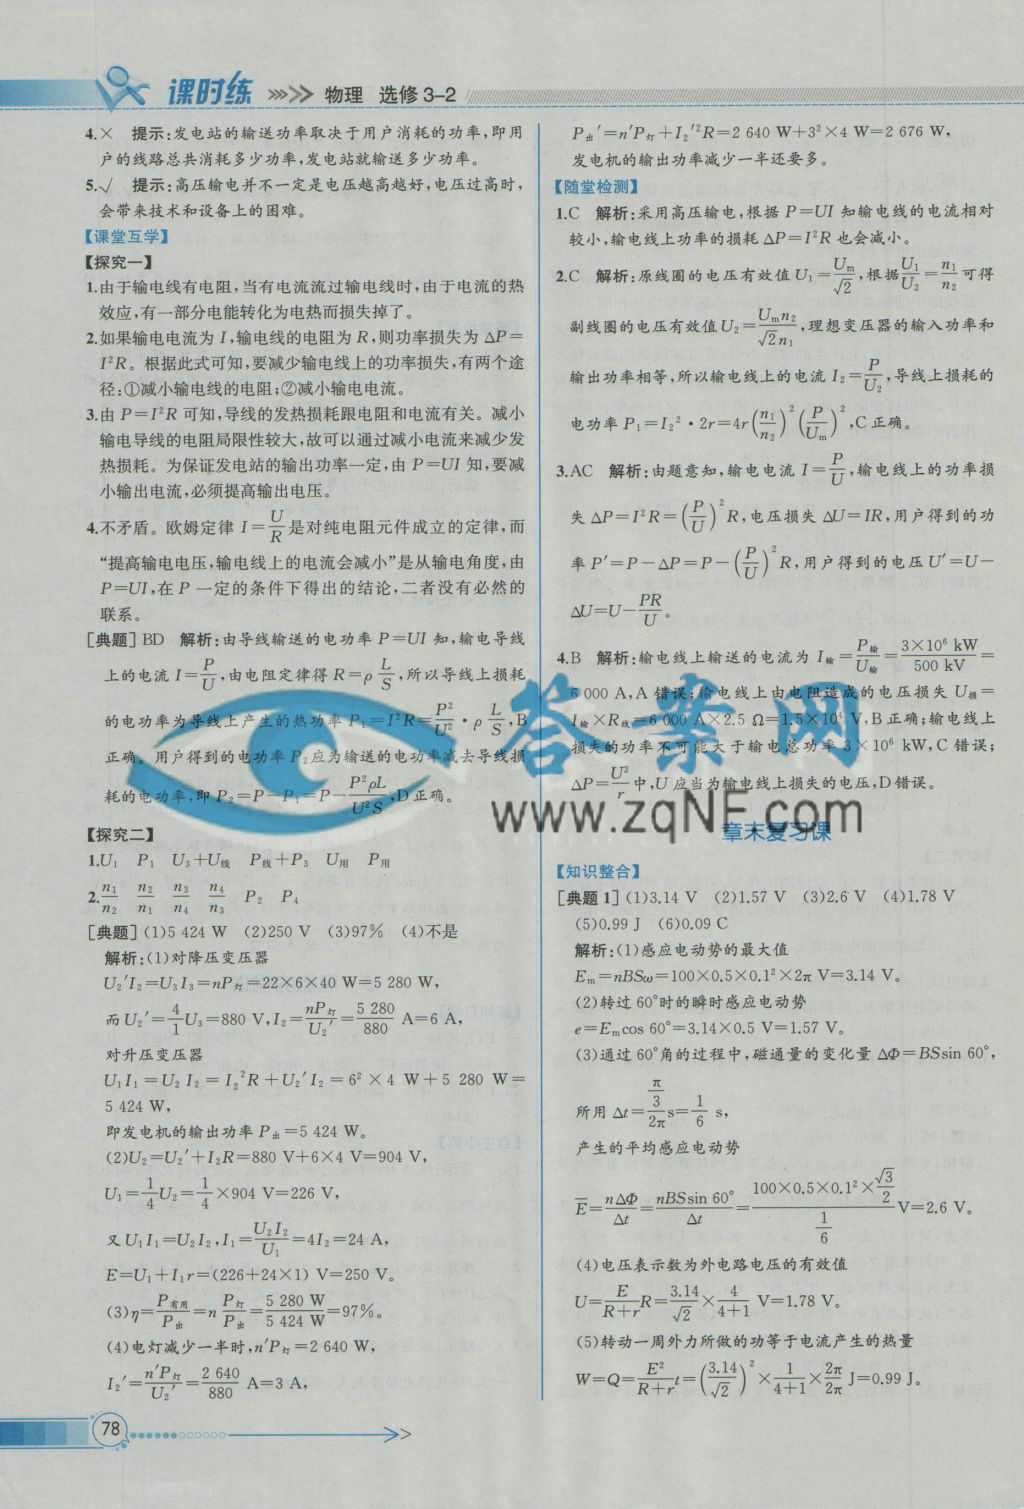 课时练 物理 选修3-2
4.× 提示:发电站的输送功率取决于用户消耗的功率,即用
户的线路总共消耗多少功率,发电站就输送多少功率。
5.√ 提示:高压输电并不一定是电压越高越好,电压过高时,
会带来技术和设备上的困难。
【课堂互学】
【探究一】
1.由于输电线有电阻,当有电流流过输电线时,由于电流的热
效应,有一部分电能转化为电热而损失掉了。
2.如果输电电流为 I,输电线的电阻为 R,则功率损失为 ΔP=
I²R。根据此式可知,要减少输电线上的功率损失,有两个途
径:①减小输电线的电阻;②减小输电电流。
3.由 P=I²R 可知,导线的发热损耗跟电阻和电流有关。减小
输电导线的电阻局限性较大,故可以通过减小电流来减少发
热损耗。为保证发电站的输出功率一定,由 P=UI 知,要减
小输出电流,必须提高输出电压。
4.不矛盾。欧姆定律 I=U/R是对纯电阻元件成立的定律,而
“提高输电电压,输电线上的电流会减小”是从输电角度,由
P=UI,在 P 一定的条件下得出的结论,二者没有必然的
联系。
[典题]BD 解析:由导线输送的电功率 P=UI 知,输电导线
上的电流 I=P/U,由电阻定律得 R=ρ L/S,所以导线上损耗
的电功率为导线上产生的热功率 P₁=I²R=P²/U²·ρ L/S,B
正确。用户得到的电功率 P₂应为输送的电功率减去导线损
耗的电功率,即 P₂=P-P₁=P-P²ρL/U²S,D正确。
【探究二】
1.U₁ P₁ U₃+U线 P线+P₃ U用 P用
2.n₁/n₂ n₂/n₁ n₃/n₄ n₄/n₃ P₂ P₄
[典题](1)5 424 W (2)250 V (3)97% (4)不是
解析:(1)对降压变压器
U₂′I₂=U₃I₃=nP灯=22×6×40 W=5 280 W,
而U₂′=4/1U₃=880 V,I₂=nP灯/U₂′=5 280/880 A=6 A,
对升压变压器
U₁I₁=U₂I₂=I₂²R+U₂′I₂=6²×4 W+5 280 W=
5 424 W,
即发电机的输出功率 P出=5 424 W。
(2)U₂=U₂′+I₂R=880 V+6×4 V=904 V,
U₁=1/4U₂=1/4×904 V=226 V,
又 U₁I₁=U₂I₂,I₁=U₂I₂/U₁=4I₂=24 A,
E=U₁+I₁r=(226+24×1) V=250 V。
(3)η=P有用/P出=n P灯/P出=5 280 W/5 424 W=97%。
(4)电灯减少一半时,n′P灯=2 640 W,
I₂′=n′P灯/U₂′=2 640/880 A=3 A,
P出′=n′P灯+I₂′²R=2 640 W+3²×4 W=2 676 W,
发电机的输出功率减少一半还要多。
【随堂检测】
1.C 解析:采用高压输电,根据 P=UI 知输电线的电流相对
较小,输电线上功率的损耗 ΔP=I²R 也会减小。
2.C 解析:原线圈的电压有效值 U₁=Um/√2,根据U₁/U₂=n₁/n₂可得
副线圈的电压有效值U₂=Umn₂/√2n₁,理想变压器的输入功率和
输出功率相等,所以输电线上的电流 I₂=P/U₂,导线上损耗的
电功率 P₁=I₂²·2r=4r(n₁/n₂)²(P/Um)²,C正确。
3.AC 解析:由题意知,输电电流 I=P/U,输电线上的功率损
失 ΔP=I²R=(P/U)²R,电压损失 ΔU=IR,用户得到的功
率 P′=P-ΔP=P-(P/U)²R,用户得到的电压 U′=U-
ΔU=U-PR/U。
4.B 解析:输电线上输送的电流为 I输=P输/U输=3×10⁶ kW/500 kV=
6 000 A,A 错误;输电线上由电阻造成的电压损失 U损=
I输×R线=6 000 A×2.5 Ω=1.5×10⁴ V,B正确;输电线上
损失的功率不可能大于输电总功率 3×10⁶ kW,C 错误;
ΔP=U²/r中,U应当为输电线上损失的电压,D错误。
章末复习课
【知识整合】
[典题1](1)3.14 V (2)1.57 V (3)2.6 V (4)1.78 V
(5)0.99 J (6)0.09 C
解析:(1)感应电动势的最大值
Em=nBSω=100×0.5×0.1²×2π V=3.14 V。
(2)转过 60°时的瞬时感应电动势
e=Emcos 60°=3.14×0.5 V=1.57 V。
(3)通过 60°角的过程中,磁通量的变化量 ΔΦ=BSsin 60°,
所用 Δt=(π/3)/2π s=1/6 s,
产生的平均感应电动势
E̅=nΔΦ/Δt=nBSsin 60°/Δt=(100×0.5×0.1²×√3/2)/(1/6) V=2.6 V。
(4)电压表示数为外电路电压的有效值
U=E/(R+r)R=3.14/√2×4/(4+1) V=1.78 V。
(5)转动一周外力所做的功等于电流产生的热量
W=Q=E²/(R+r)t=(3.14/√2)²×1/(4+1)×2π/2π J=0.99 J。
78
答案网
www.zqNF.com